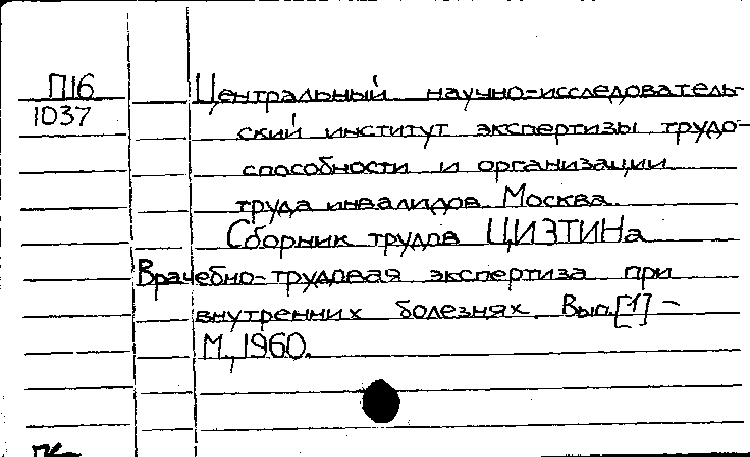 П16
1037
Центральный научно-исследователь-
ский институт экспертизы трудо-
способности и организации
труда инвалидов. Москва.
Сборник трудов ЦИЭТИНа
Врачебно-трудовая экспертиза при
внутренних болезнях. Вып.[1] –
М., 1960.